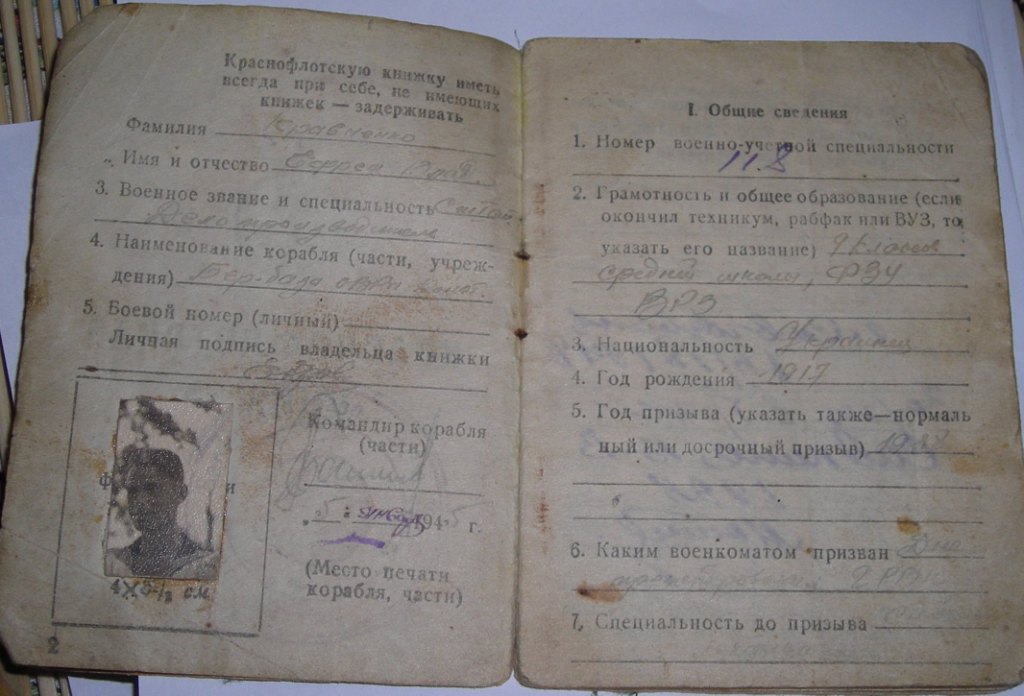 Краснофлотскую книжку иметь
всегда при себе, не имеющих
книжек — задерживать
Фамилия Кравченко
Имя и отчество
3. Военное звание и специальность
Делопроизводитель
4. Наименование корабля (части, учреж-
дения) Бер. база
5. Боевой номер (личный)
Личная подпись владельца книжки
Командир корабля
(части)
„5" января 1945 г.
4×3½ см
(Место печати
корабля, части)
2
I. Общие сведения
1. Номер военно-учетной специальности
118
2. Грамотность и общее образование (если
окончил техникум, рабфак или ВУЗ, то
указать его название) 9 классов
средней школы, ФЗУ
ВРЗ
3. Национальность Украинец
4. Год рождения 1917
5. Год призыва (указать также—нормаль
ный или досрочный призыв)
6. Каким военкоматом призван Дне
пропетровским РВК
7. Специальность до призыва